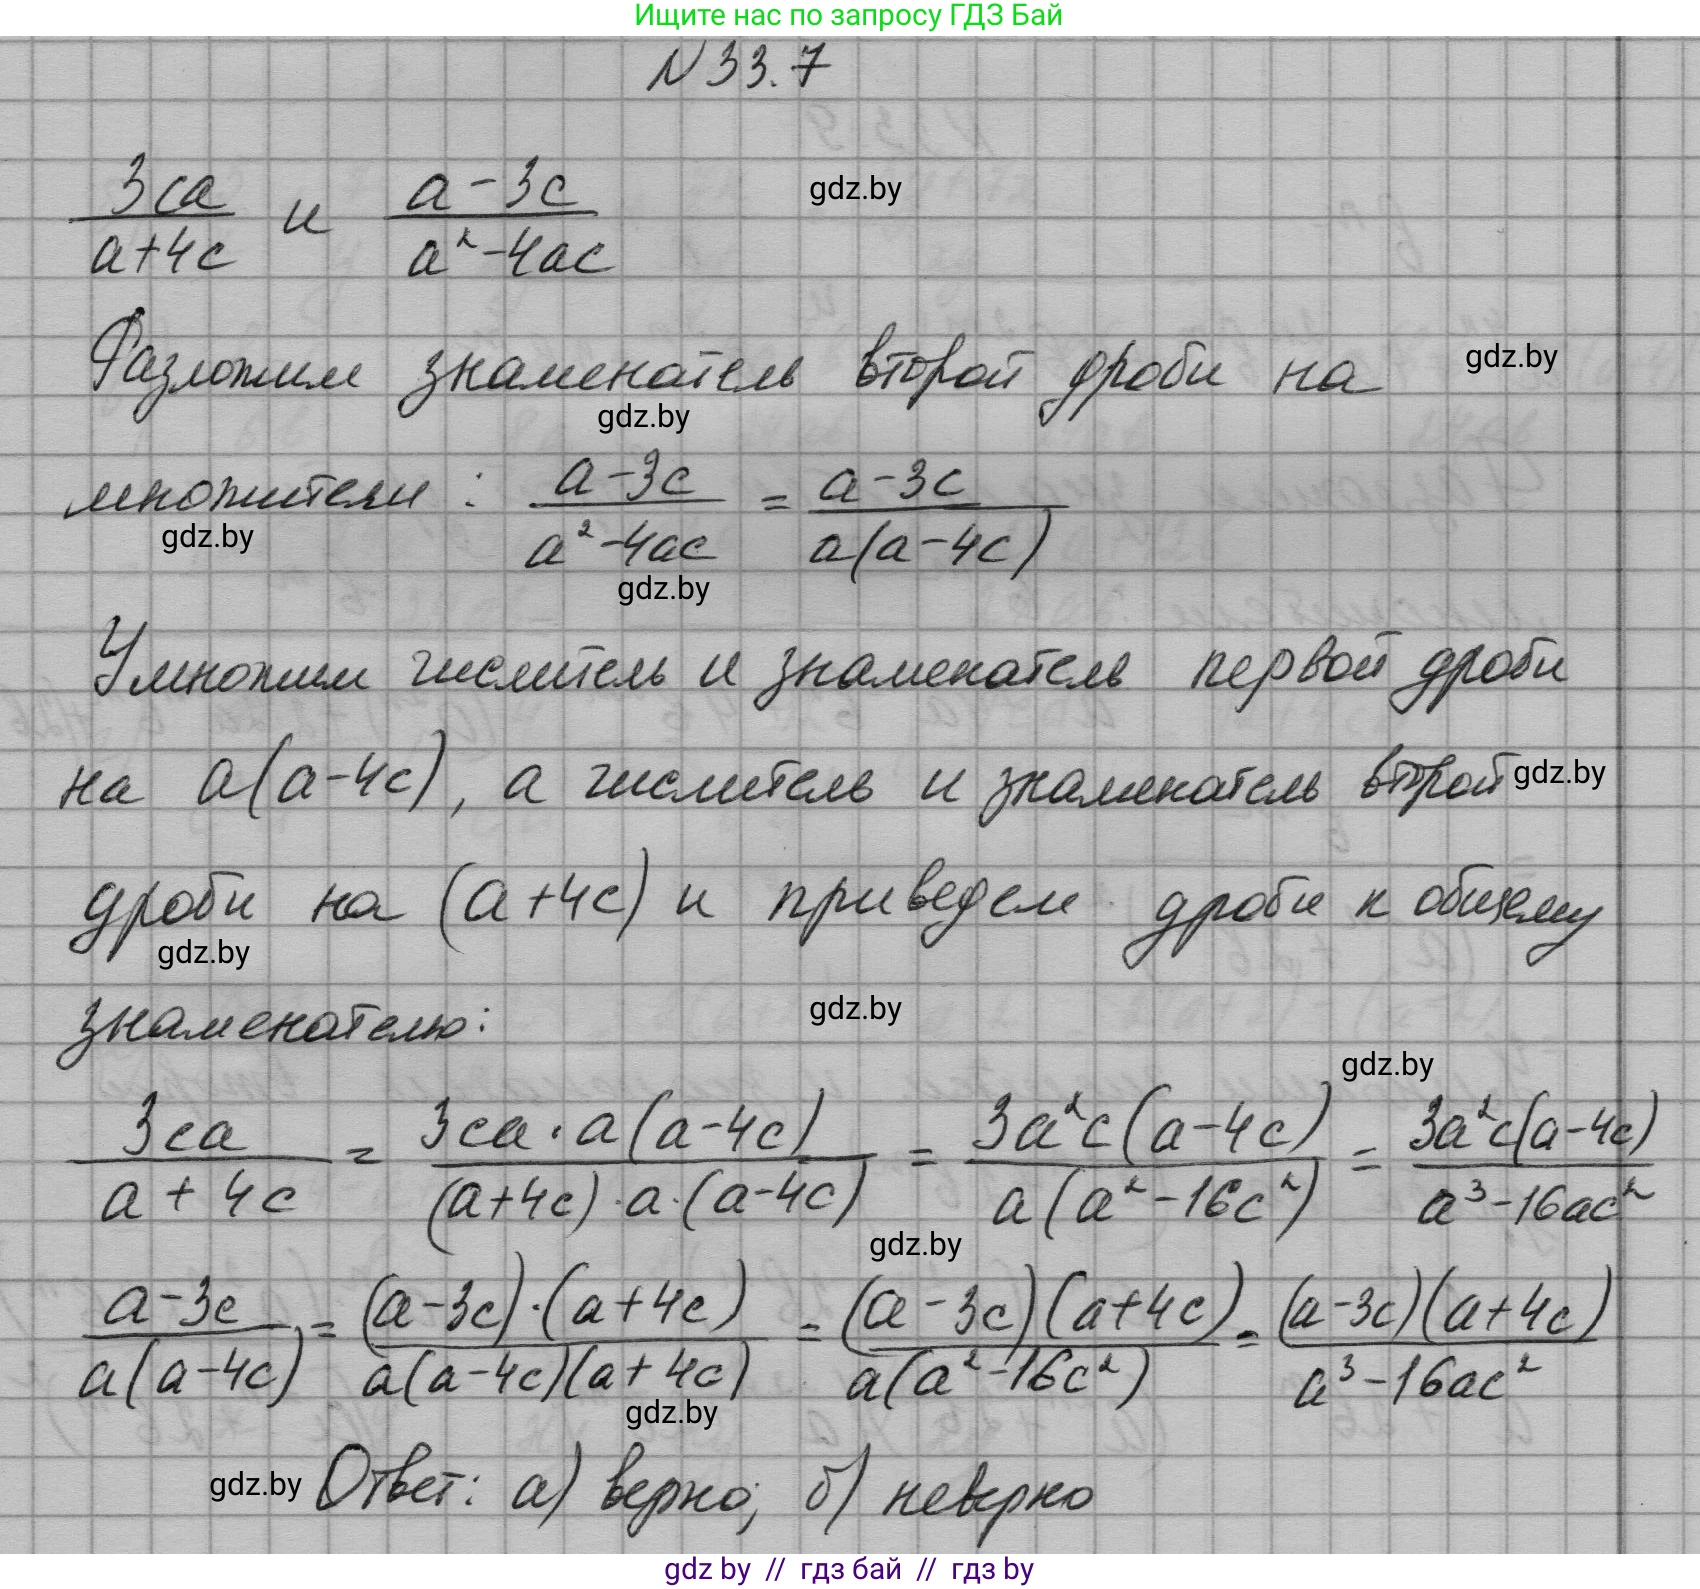 Ищите нас по запросу ГДЗ Бай
N 33.7
3ca/(a+4c) и (a-3c)/(a²-4ac) gdz.by
Разложим знаменатель второй дроби на gdz.by
gdz.by
множители: (a-3c)/(a²-4ac) = (a-3c)/(a(a-4c))
gdz.by
gdz.by
Умножим числитель и знаменатель первой дроби
на a(a-4c), а числитель и знаменатель второй gdz.by
дроби на (a+4c) и приведем дроби к общему
gdz.by
знаменателю: gdz.by
gdz.by
3ca/(a+4c) = (3ca·a(a-4c))/((a+4c)·a·(a-4c)) = (3a²c(a-4c))/(a(a²-16c²)) = (3a²c(a-4c))/(a³-16ac²)
gdz.by
(a-3c)/(a(a-4c)) = ((a-3c)·(a+4c))/(a(a-4c)(a+4c)) = ((a-3c)(a+4c))/(a(a²-16c²)) = ((a-3c)(a+4c))/(a³-16ac²)
gdz.by
gdz.by Ответ: а) верно; б) неверно
gdz by // гдз бай // гдз by